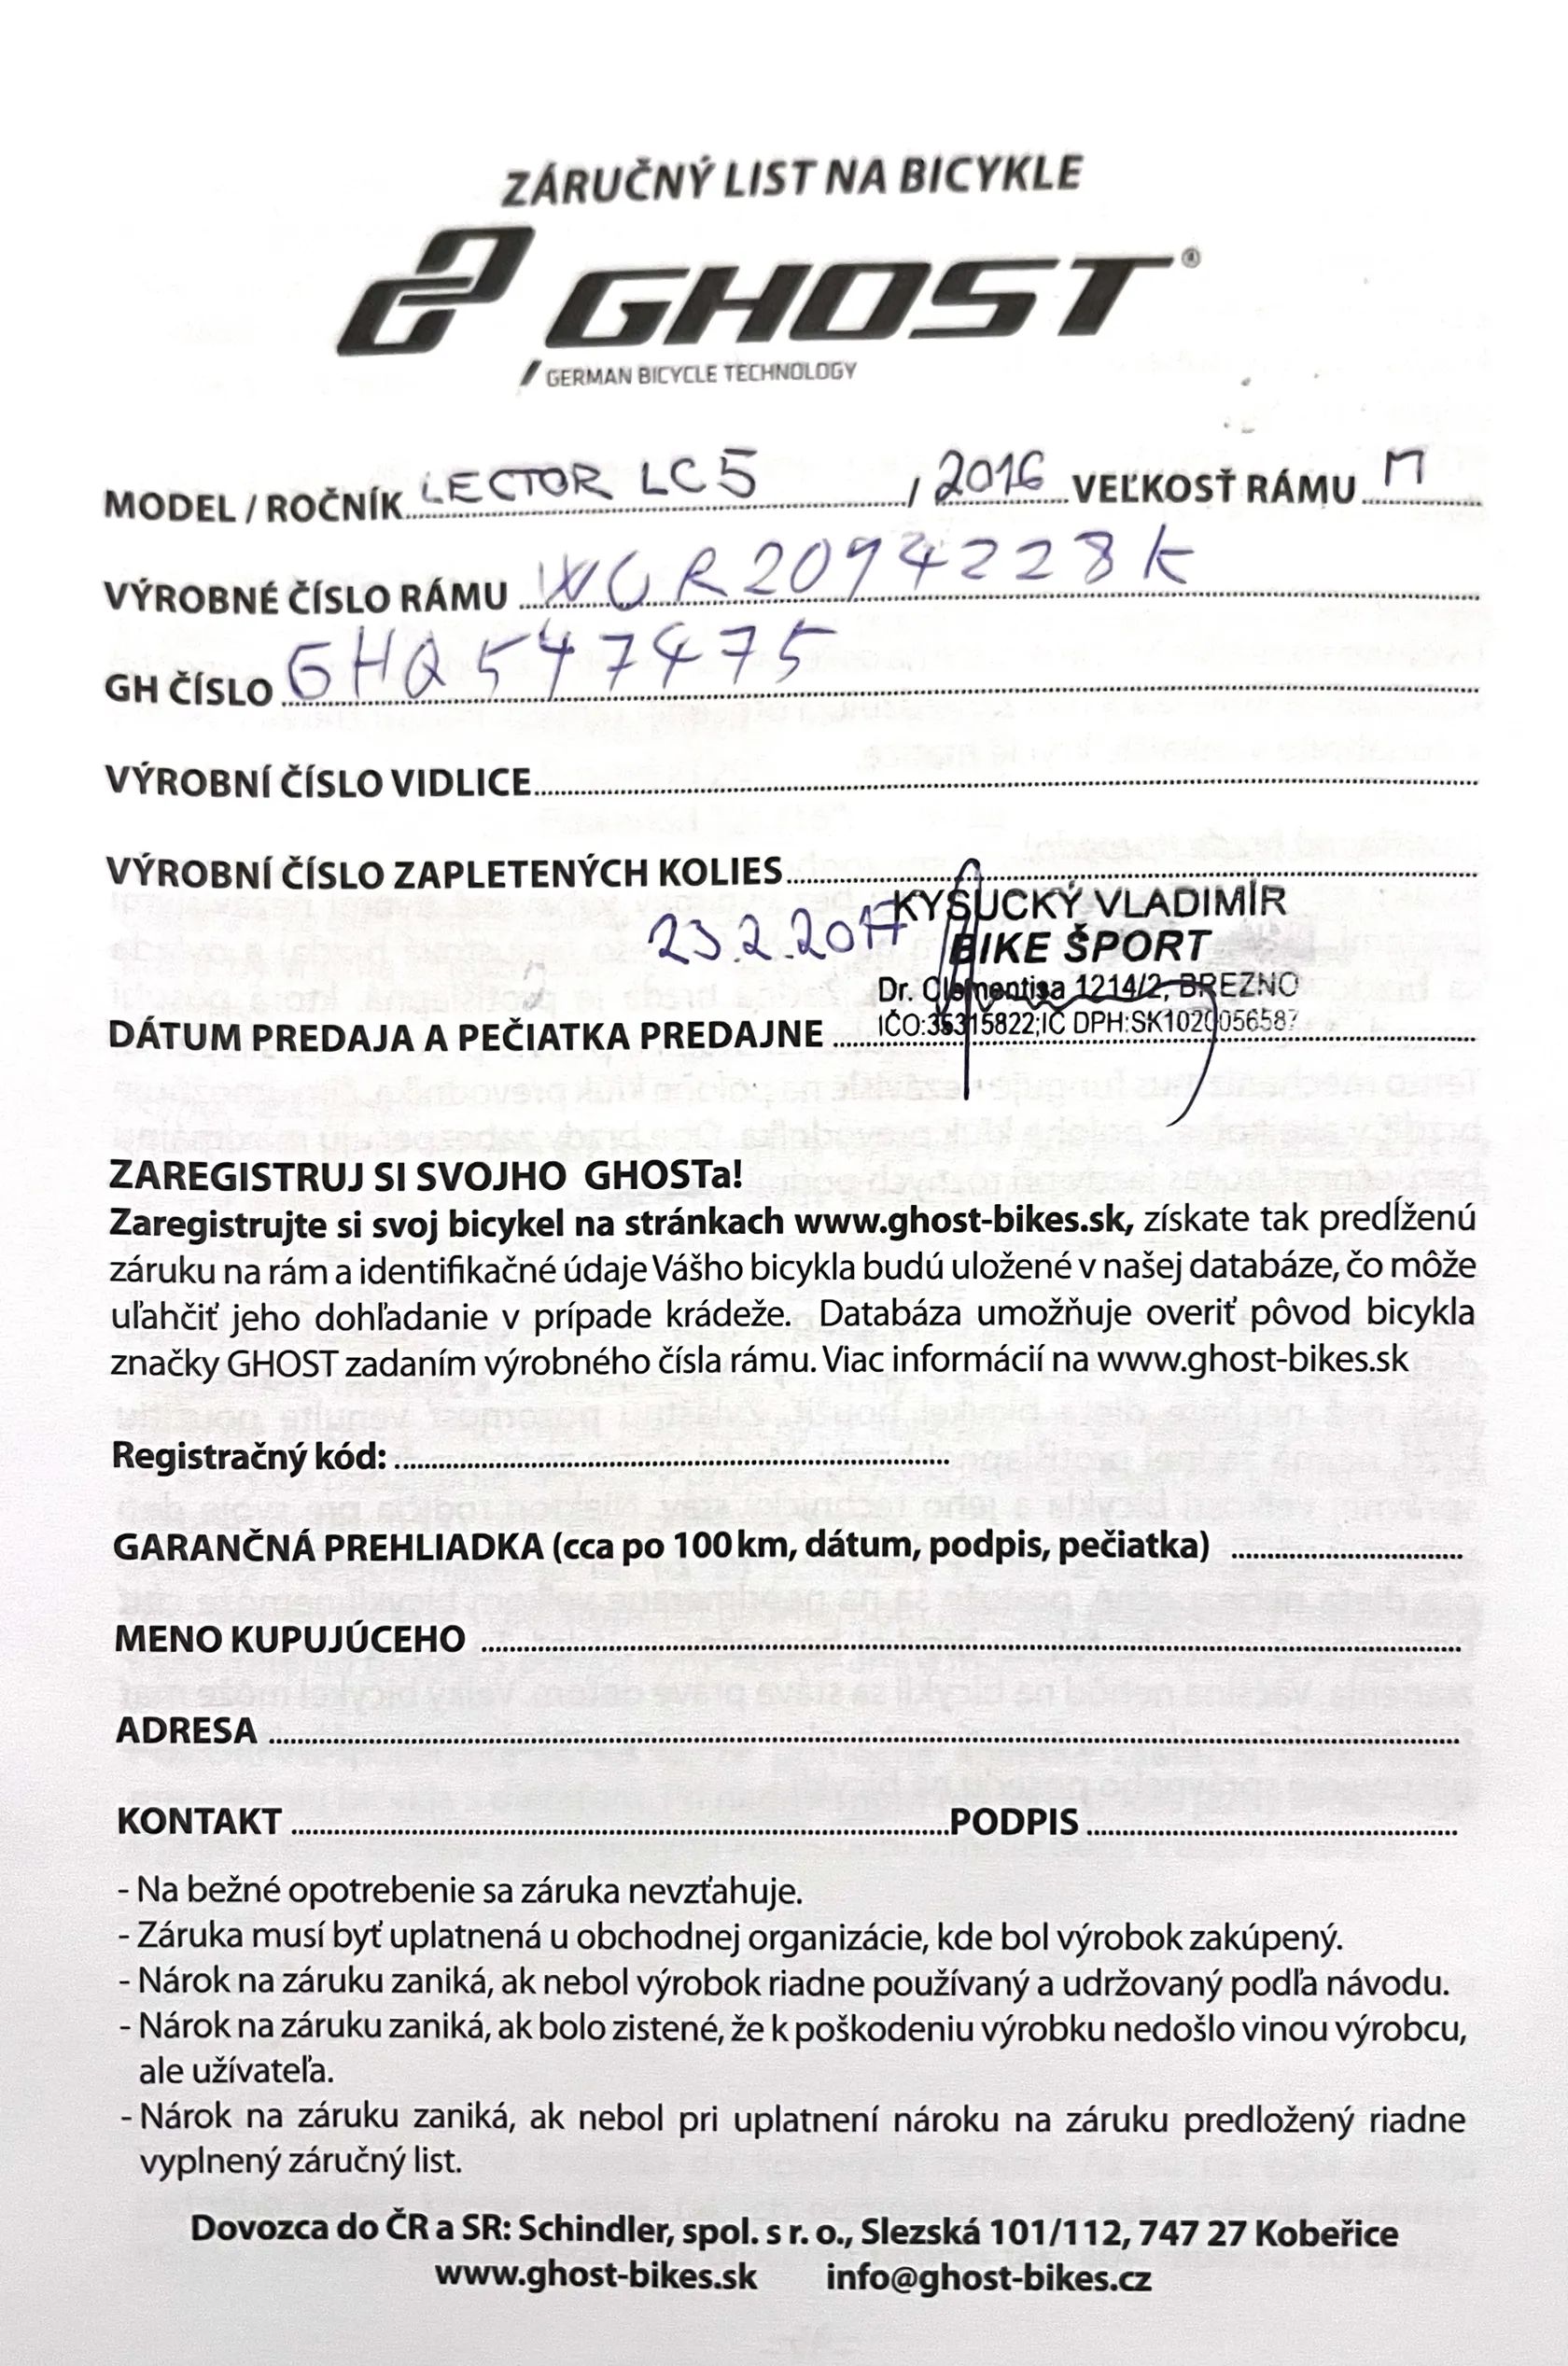 ZÁRUČNÝ LIST NA BICYKLE
GHOST®
GERMAN BICYCLE TECHNOLOGY
MODEL / ROČNÍK LECTOR LC5 / 2016 VEĽKOSŤ RÁMU M
VÝROBNÉ ČÍSLO RÁMU WCR2094228K
GH ČÍSLO GHQ547475
VÝROBNÍ ČÍSLO VIDLICE
VÝROBNÍ ČÍSLO ZAPLETENÝCH KOLIES
23.2.2017 KYSUCKÝ VLADIMÍR
BIKE ŠPORT
Dr. Clementisa 1214/2, BREZNO
IČO:35315822;IČ DPH:SK1020056587
DÁTUM PREDAJA A PEČIATKA PREDAJNE
ZAREGISTRUJ SI SVOJHO GHOSTa!
Zaregistrujte si svoj bicykel na stránkach www.ghost-bikes.sk, získate tak predĺženú
záruku na rám a identifikačné údaje Vášho bicykla budú uložené v našej databáze, čo môže
uľahčiť jeho dohľadanie v prípade krádeže. Databáza umožňuje overiť pôvod bicykla
značky GHOST zadaním výrobného čísla rámu. Viac informácií na www.ghost-bikes.sk
Registračný kód:
GARANČNÁ PREHLIADKA (cca po 100 km, dátum, podpis, pečiatka)
MENO KUPUJÚCEHO
ADRESA
KONTAKT PODPIS
- Na bežné opotrebenie sa záruka nevzťahuje.
- Záruka musí byť uplatnená u obchodnej organizácie, kde bol výrobok zakúpený.
- Nárok na záruku zaniká, ak nebol výrobok riadne používaný a udržovaný podľa návodu.
- Nárok na záruku zaniká, ak bolo zistené, že k poškodeniu výrobku nedošlo vinou výrobcu,
ale užívateľa.
- Nárok na záruku zaniká, ak nebol pri uplatnení nároku na záruku predložený riadne
vyplnený záručný list.
Dovozca do ČR a SR: Schindler, spol. s r. o., Slezská 101/112, 747 27 Kobeřice
www.ghost-bikes.sk info@ghost-bikes.cz